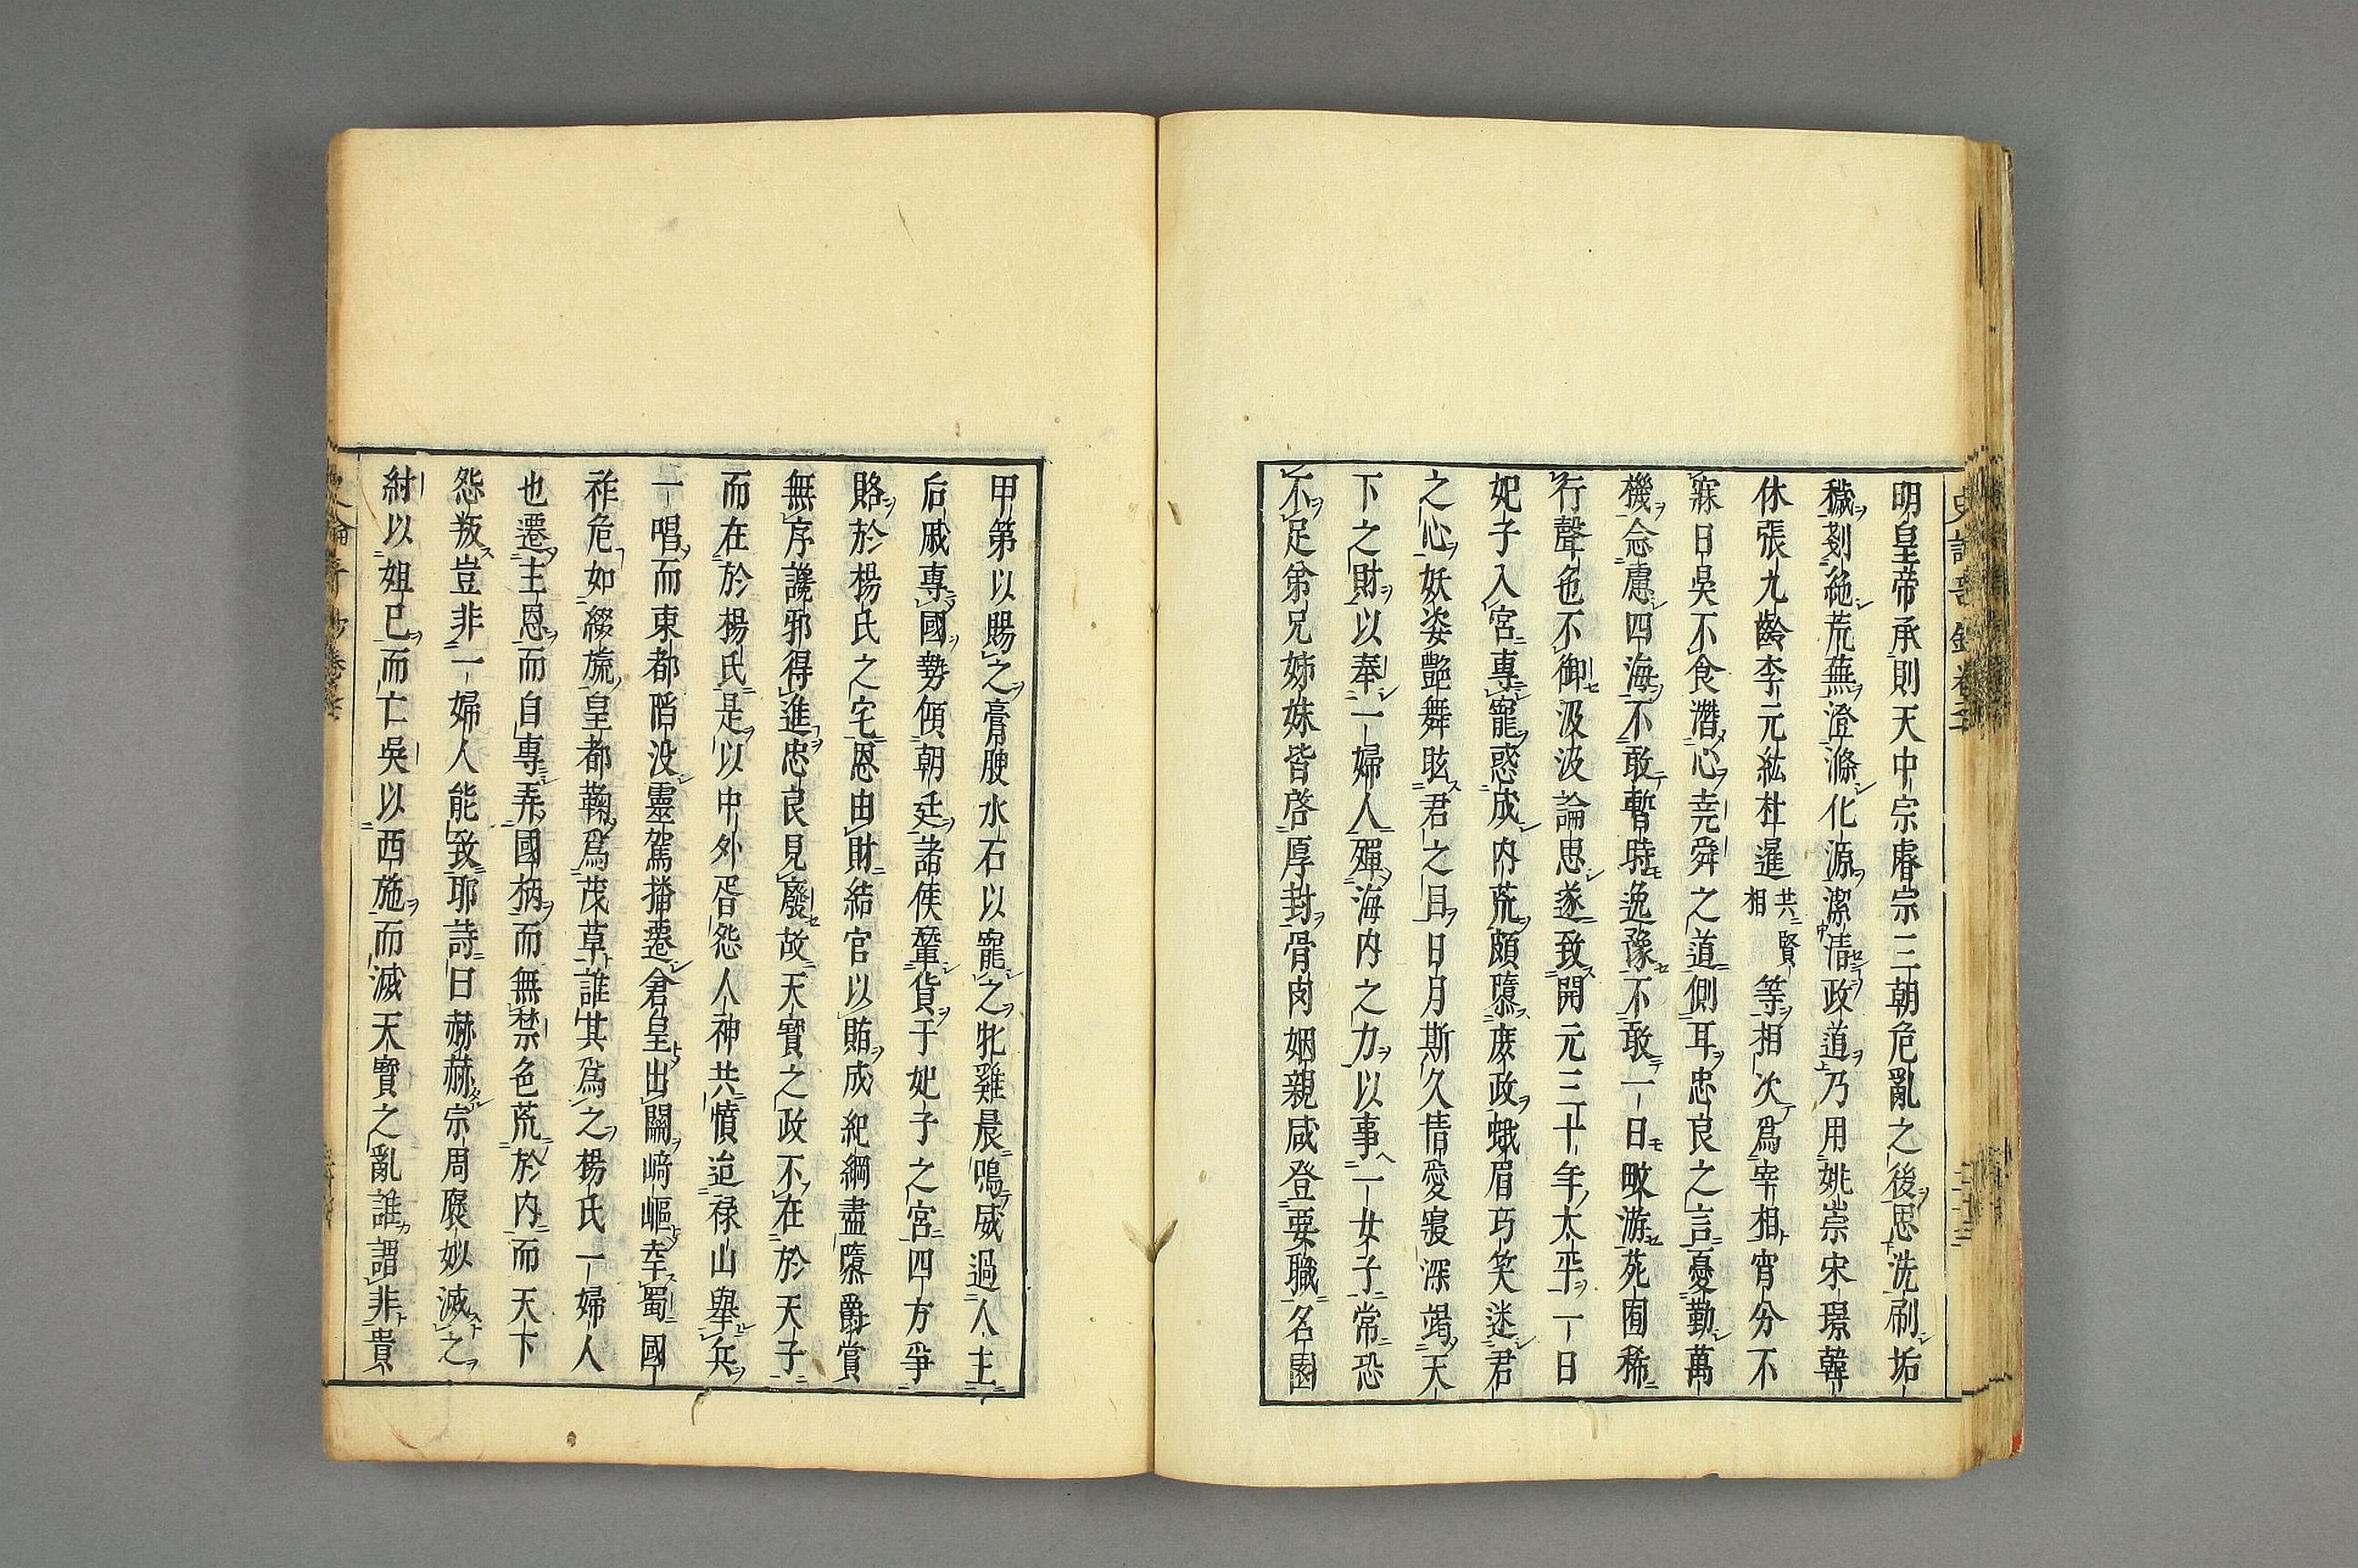 明皇帝承則天中宗睿宗三朝危亂之後思洗刷垢
穢剗絶荒蕪澄滌化源潔清政道乃用姚崇宋璟韓
休張九齡李元紘杜暹共相賢等相次爲宰相宵分不
寐日昃不食潛心堯舜之道側耳忠良之言憂勤萬
機念慮四海不敢暫時逸豫不敢一日畋游苑囿稀
行聲色不御汲汲論思遂致開元三十年太平一日
妃子入宮專寵惑成内荒頗隳庶政蛾眉巧笑迷君
之心妖姿艶舞眩君之目日月斯久情愛寝深竭天
下之財以奉一婦人殫海内之力以事一女子常恐
不足弟兄姊妹皆啓厚封骨肉姻親咸登要職名園
甲第以賜之膏腴水石以寵之牝雞晨鳴威過人主
后戚專國勢傾朝廷諸侯輦貨于妃子之宮四方爭
賂於楊氏之宅恩由財結官以賄成紀綱盡隳爵賞
無序讒邪得進忠良見廢故天寶之政不在於天子
而在於楊氏是以中外胥怨人神共憤迨禄山舉兵
一唱而東都陷没靈駕播遷倉皇出關﨑嶇幸蜀國
祚危如綴旒皇都鞠爲茂草誰其爲之楊氏一婦人
也遷主恩而自專弄國柄而無禁色荒於内而天下
怨叛豈非一婦人能致耶詩曰赫赫宗周褒姒滅之
紂以妲己而亡吳以西施而滅天寶之亂誰謂非貴